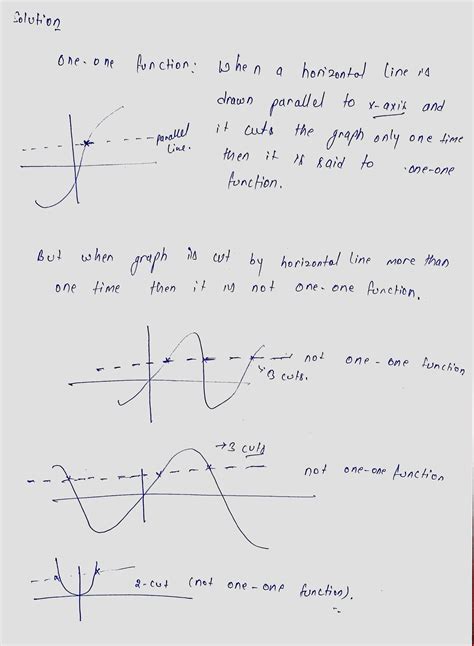 Solution
One-one function: When a horizontal line is
drawn parallel to x-axis and
it cuts the graph only one time
then it is said to one-one
function.
parallel
line.
But when graph is cut by horizontal line more than
one time then it is not one-one function.
not one-one function
3 cuts.
→3 cuts
not one-one function
2-cut (not one-one function).